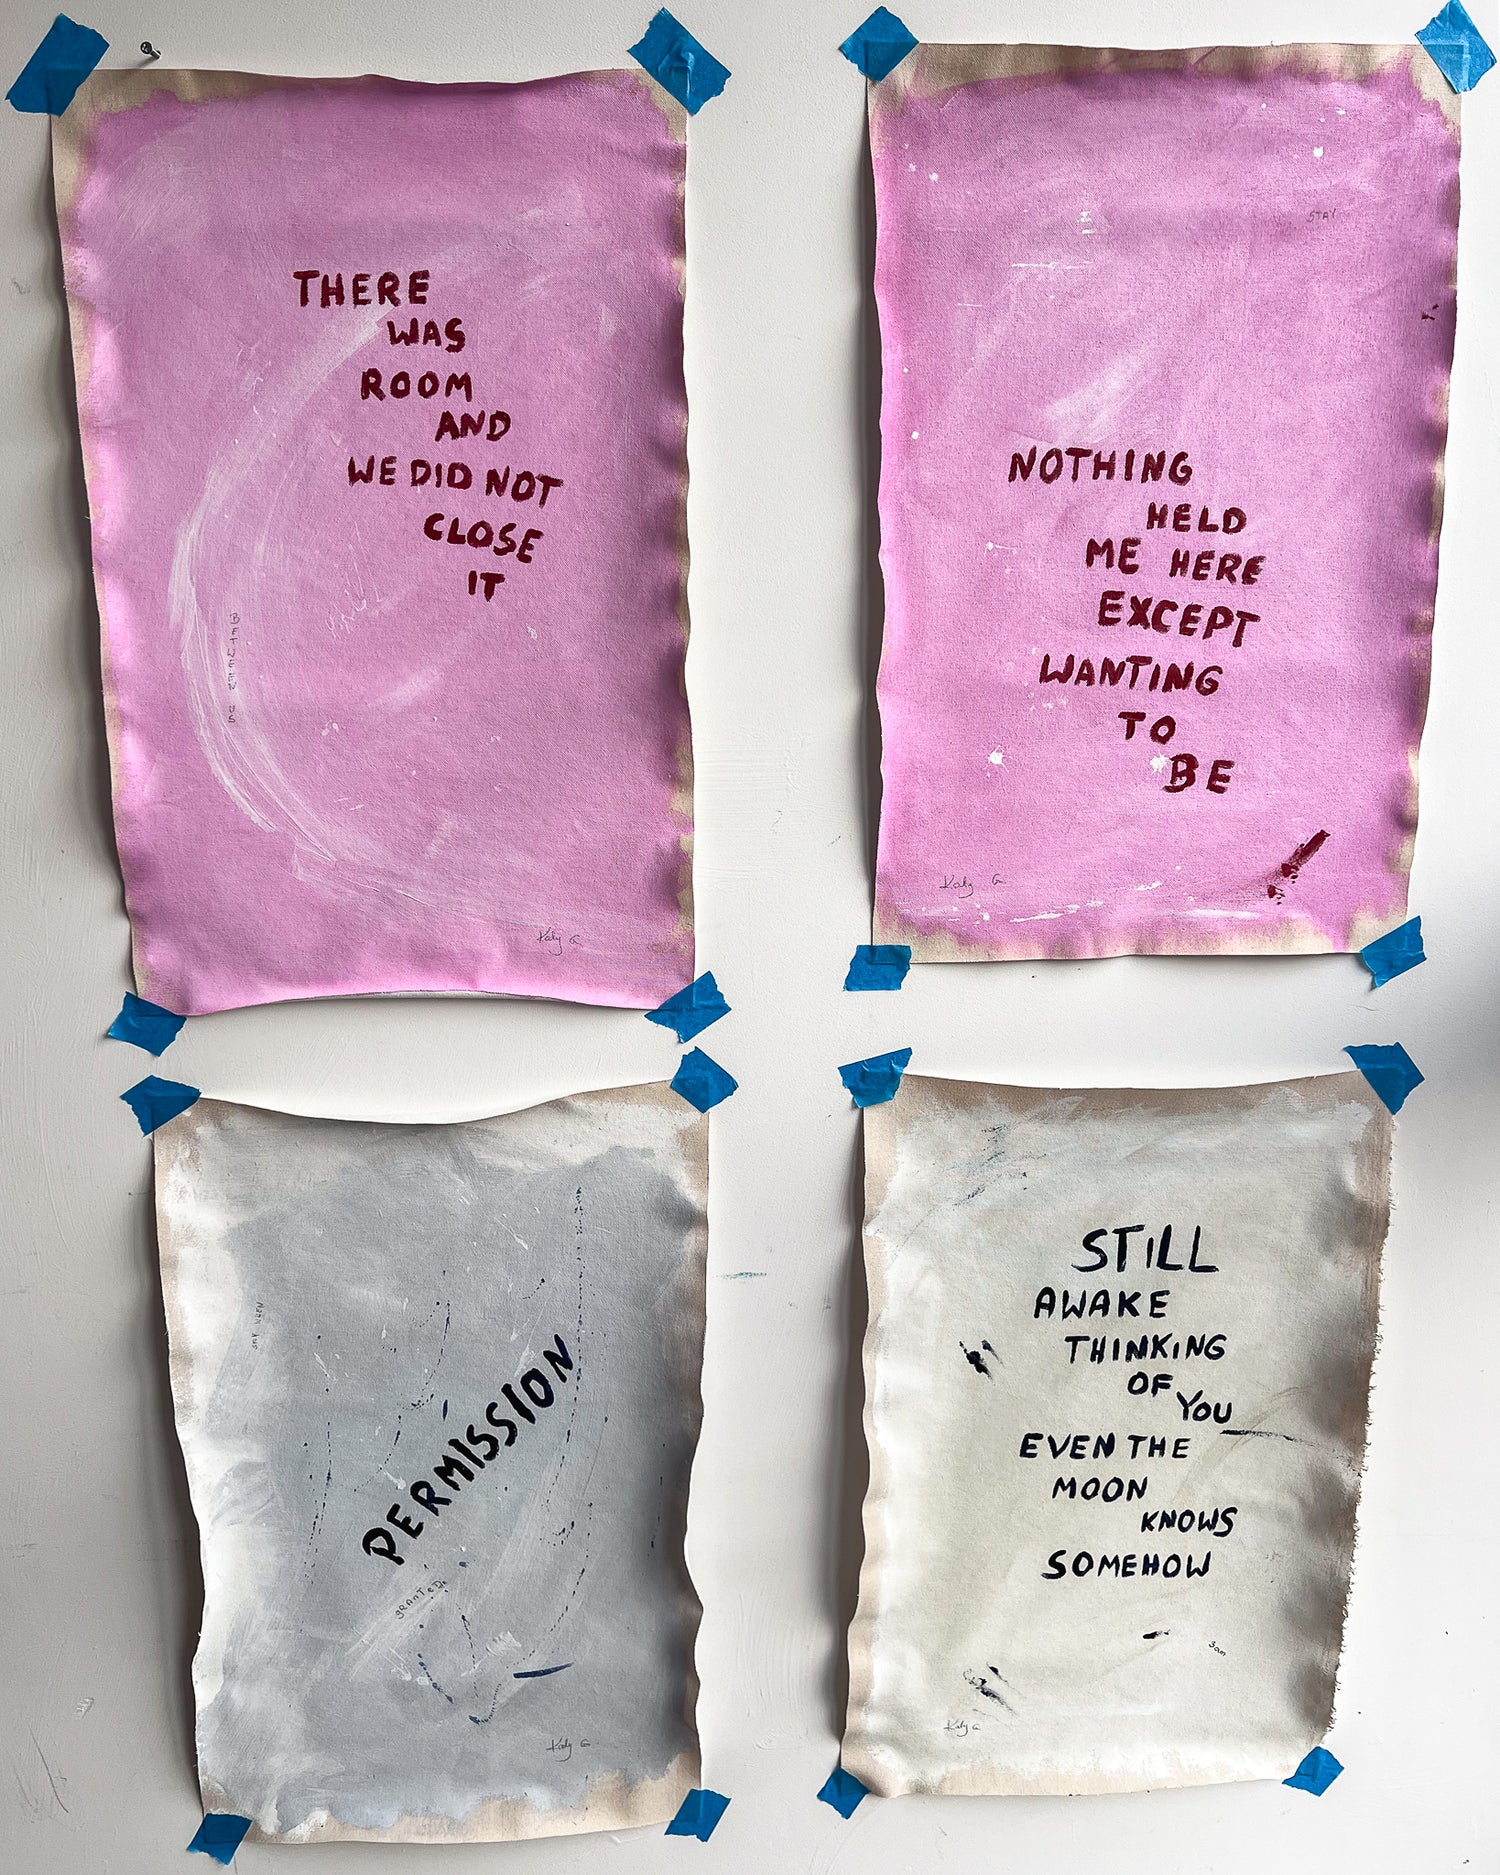 THERE
WAS
ROOM
AND
WE DID NOT
CLOSE
IT
BETWEEN US
Katy G
STAY
NOTHING
HELD
ME HERE
EXCEPT
WANTING
TO
BE
Katy G
PERMISSION
GRANTED
Katy G
STILL
AWAKE
THINKING
OF
YOU
EVEN THE
MOON
KNOWS
SOMEHOW
3am
Katy G